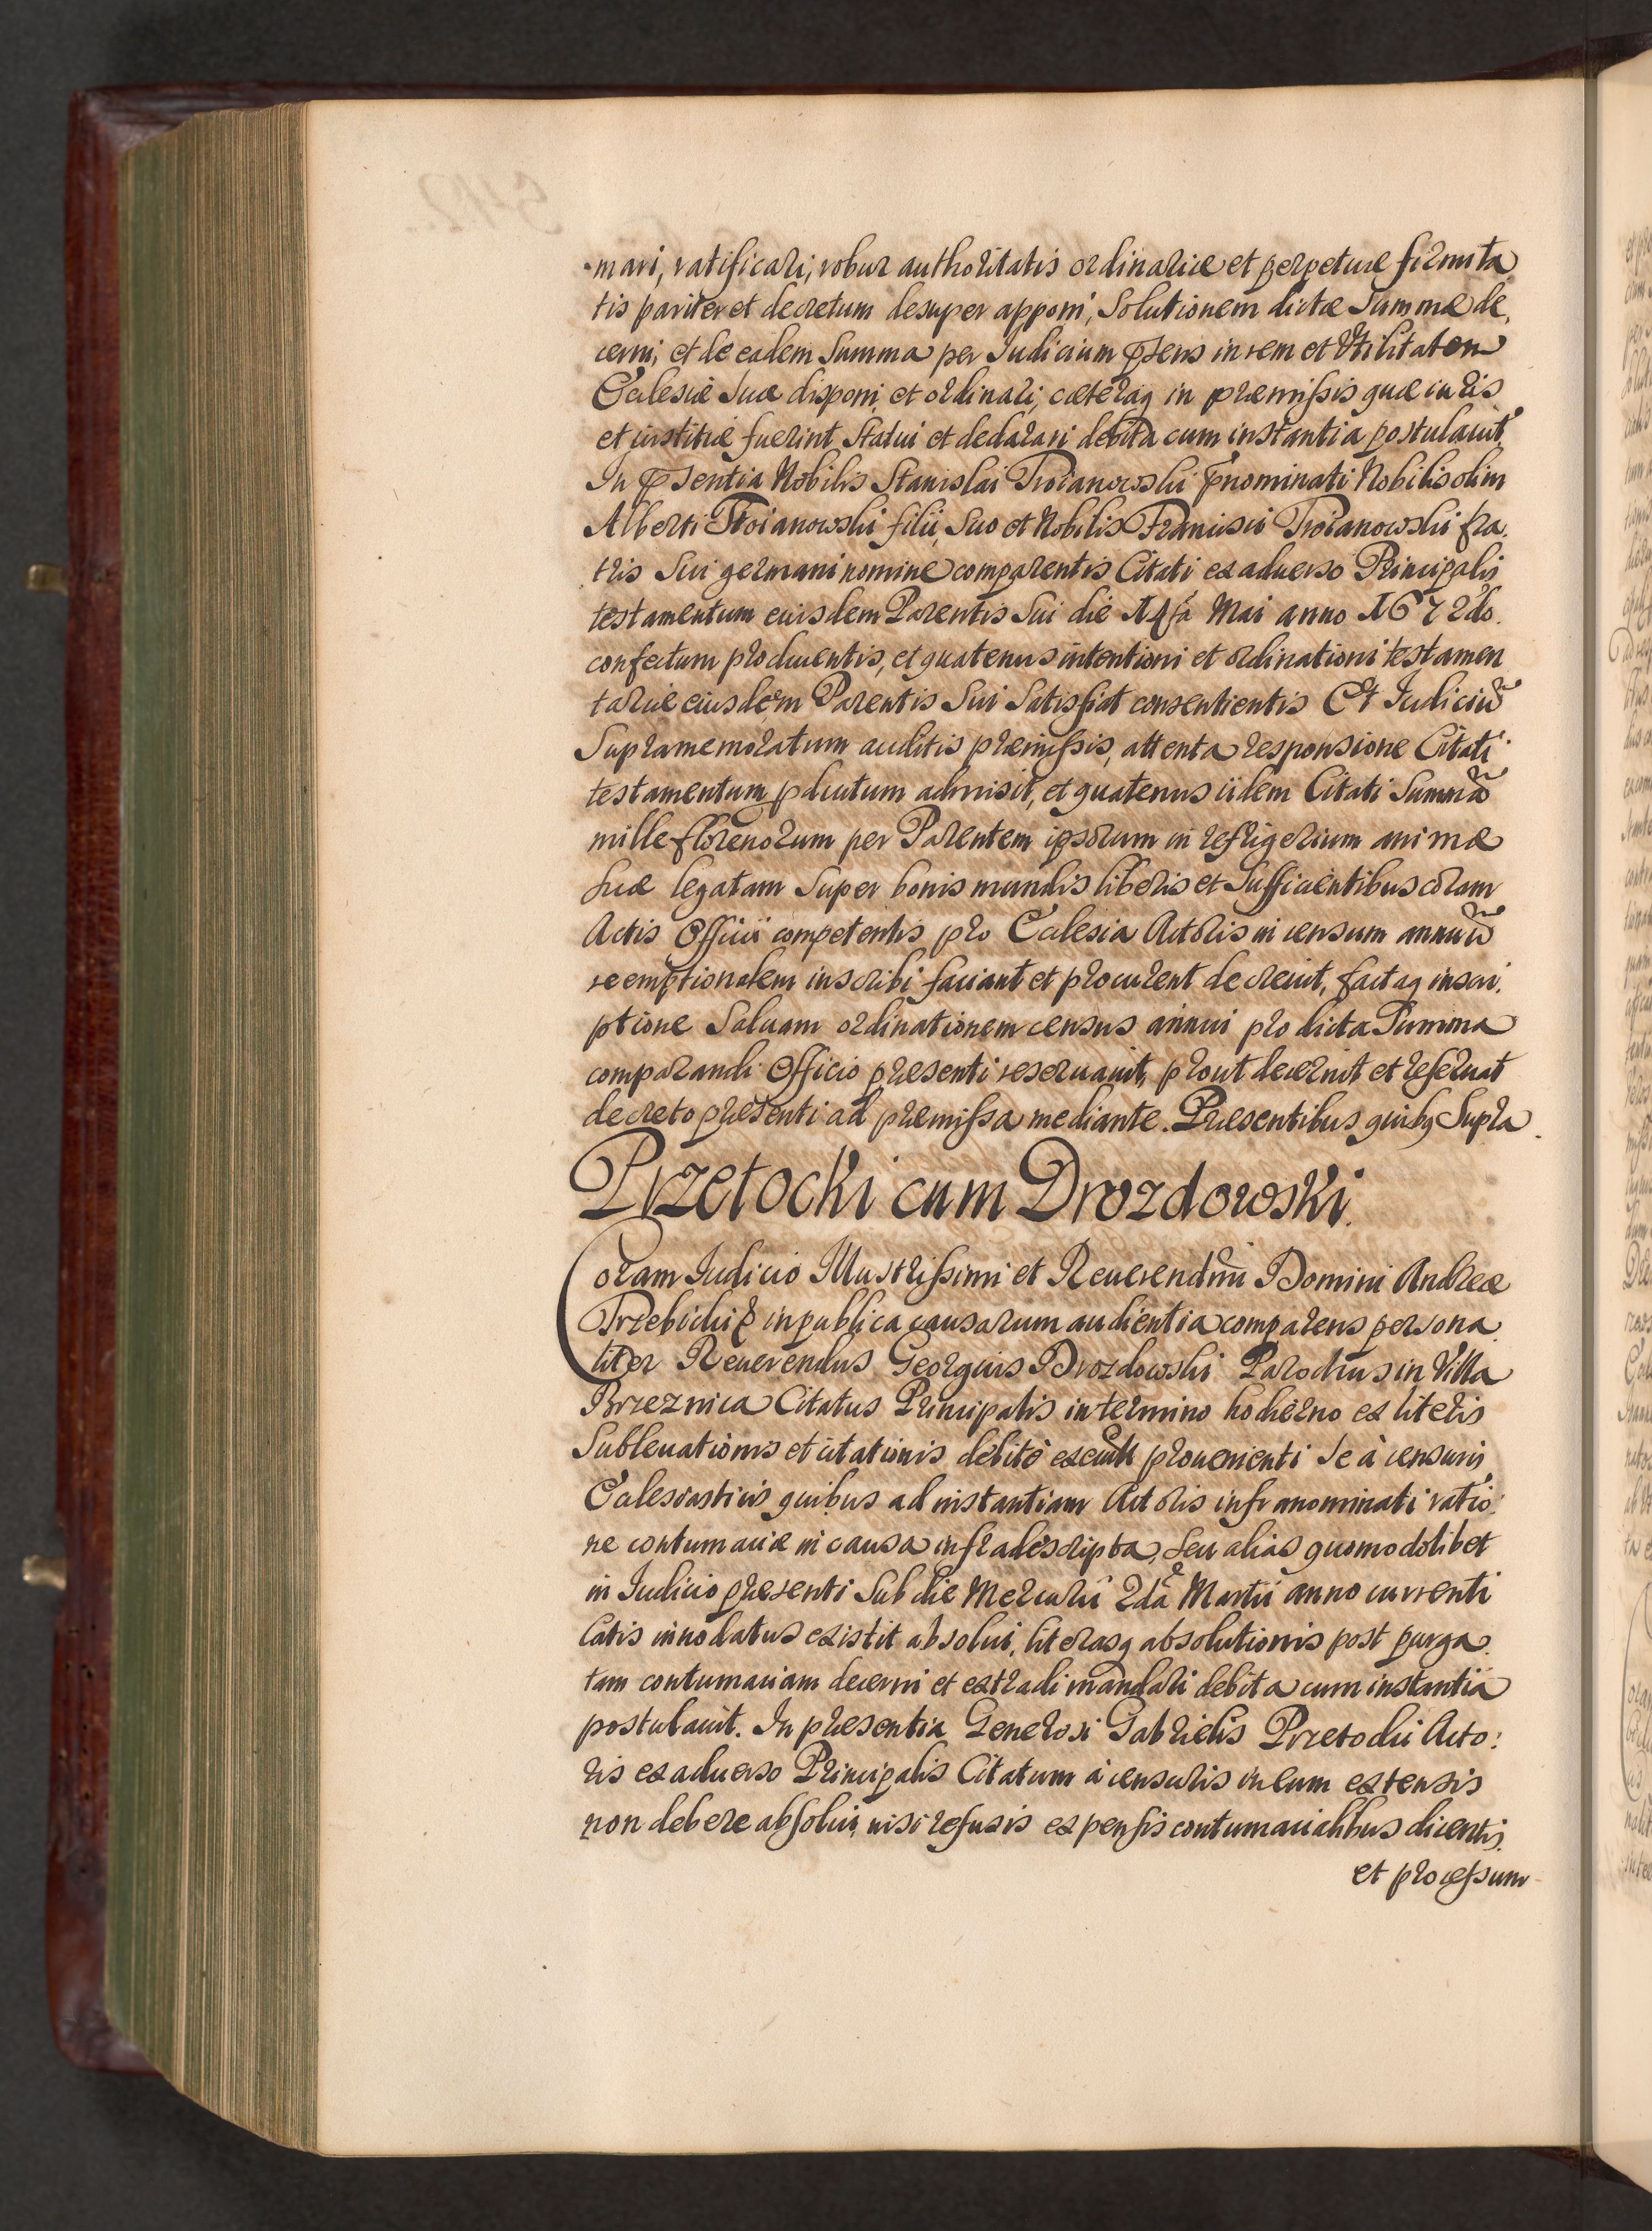 mari, ratificari, robur authoritatis ordinariæ et perpetuæ firmita
tis pariter et decretum desuper apponi, Solutionem dictæ Summæ de,
cerni, et de eadem Summa per Iudicium p̄sens in rem et Vtilitatem
Ecclesiæ Suæ disponi et ordinari, cæteraq in præmissis quæ iuris
et iustitiæ fuerint Statui et declarari debita cum instantia postulauit,
In p̄sentia Nobilis Stanislai Troianowski p̄nominati Nobilis olim
Alberti Troianowski filii, Suo et Nobilis Francisci Troianowski fra.
tris Sui germani nomine comparentis Citati ex aduerso Principalis
testamentum eiusdem Parentis Sui die 14ta Mai anno 1672do.
confectum producentis, et quatenus intentioni et ordinationi testamen
tariæ eiusdem Parentis Sui Satisfiat consentientis Et Iudiciū
Supramemoratum auditis præmissis, attenta responsione Citati
testamentum pductum admisit, et quatenus iidem Citati Summā
mille florenorum per Parentem ipsorum in refrigerium animæ
Suæ legatam Super bonis mundis liberis et Sufficientibus coram
Actis Officii competentis pro Ecclesia Actoris in censum annuū
reemptionalem inscribi faciant et procurent decreuit, factaq inscri.
ptione Saluam ordinationem census annui pro dicta Summa
comparandi Officio presenti reseruauit, prout decernit et reseruat
decreto presenti ad premissa mediante. Præsentibus quibq Supra.
Przetocki cum Drozdowski.
Coram Iudicio Illustrissimi et Reuerendm̄i Domini Andreæ
Trzebicki & in publica causarum audientia comparens persona
liter Reuerendus Georgius Drozdowski Parochus in Villa
Brzeznica Citatus Principalis in termino hodierno ex literis
Subleuationis et citationis debitè execut prouenienti Se à censuris
Ecclesiasticis quibus ad instantiam Actoris infranominati ratio:
ne contumaciæ in causa infradescripta, Seu alias quomodolibet
in Iudicio presenti Sub die Mercurii 2da Martii anno currenti
Latis innodatus existit absolui, literasq absolutionis post purga.
tam contumaciam decerni et extradi mandari debita cum instantia
postulauit. In presentia Generosi Gabrielis Przetocki Acto:
ris ex aduerso Principalis Citatum à censuris in eum extensis
non debere absolui, nisi refusis expensis contumacialibus dicentis.
et processum